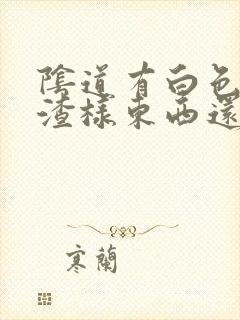 陰道有白色
渣樣東西還
寒蘭